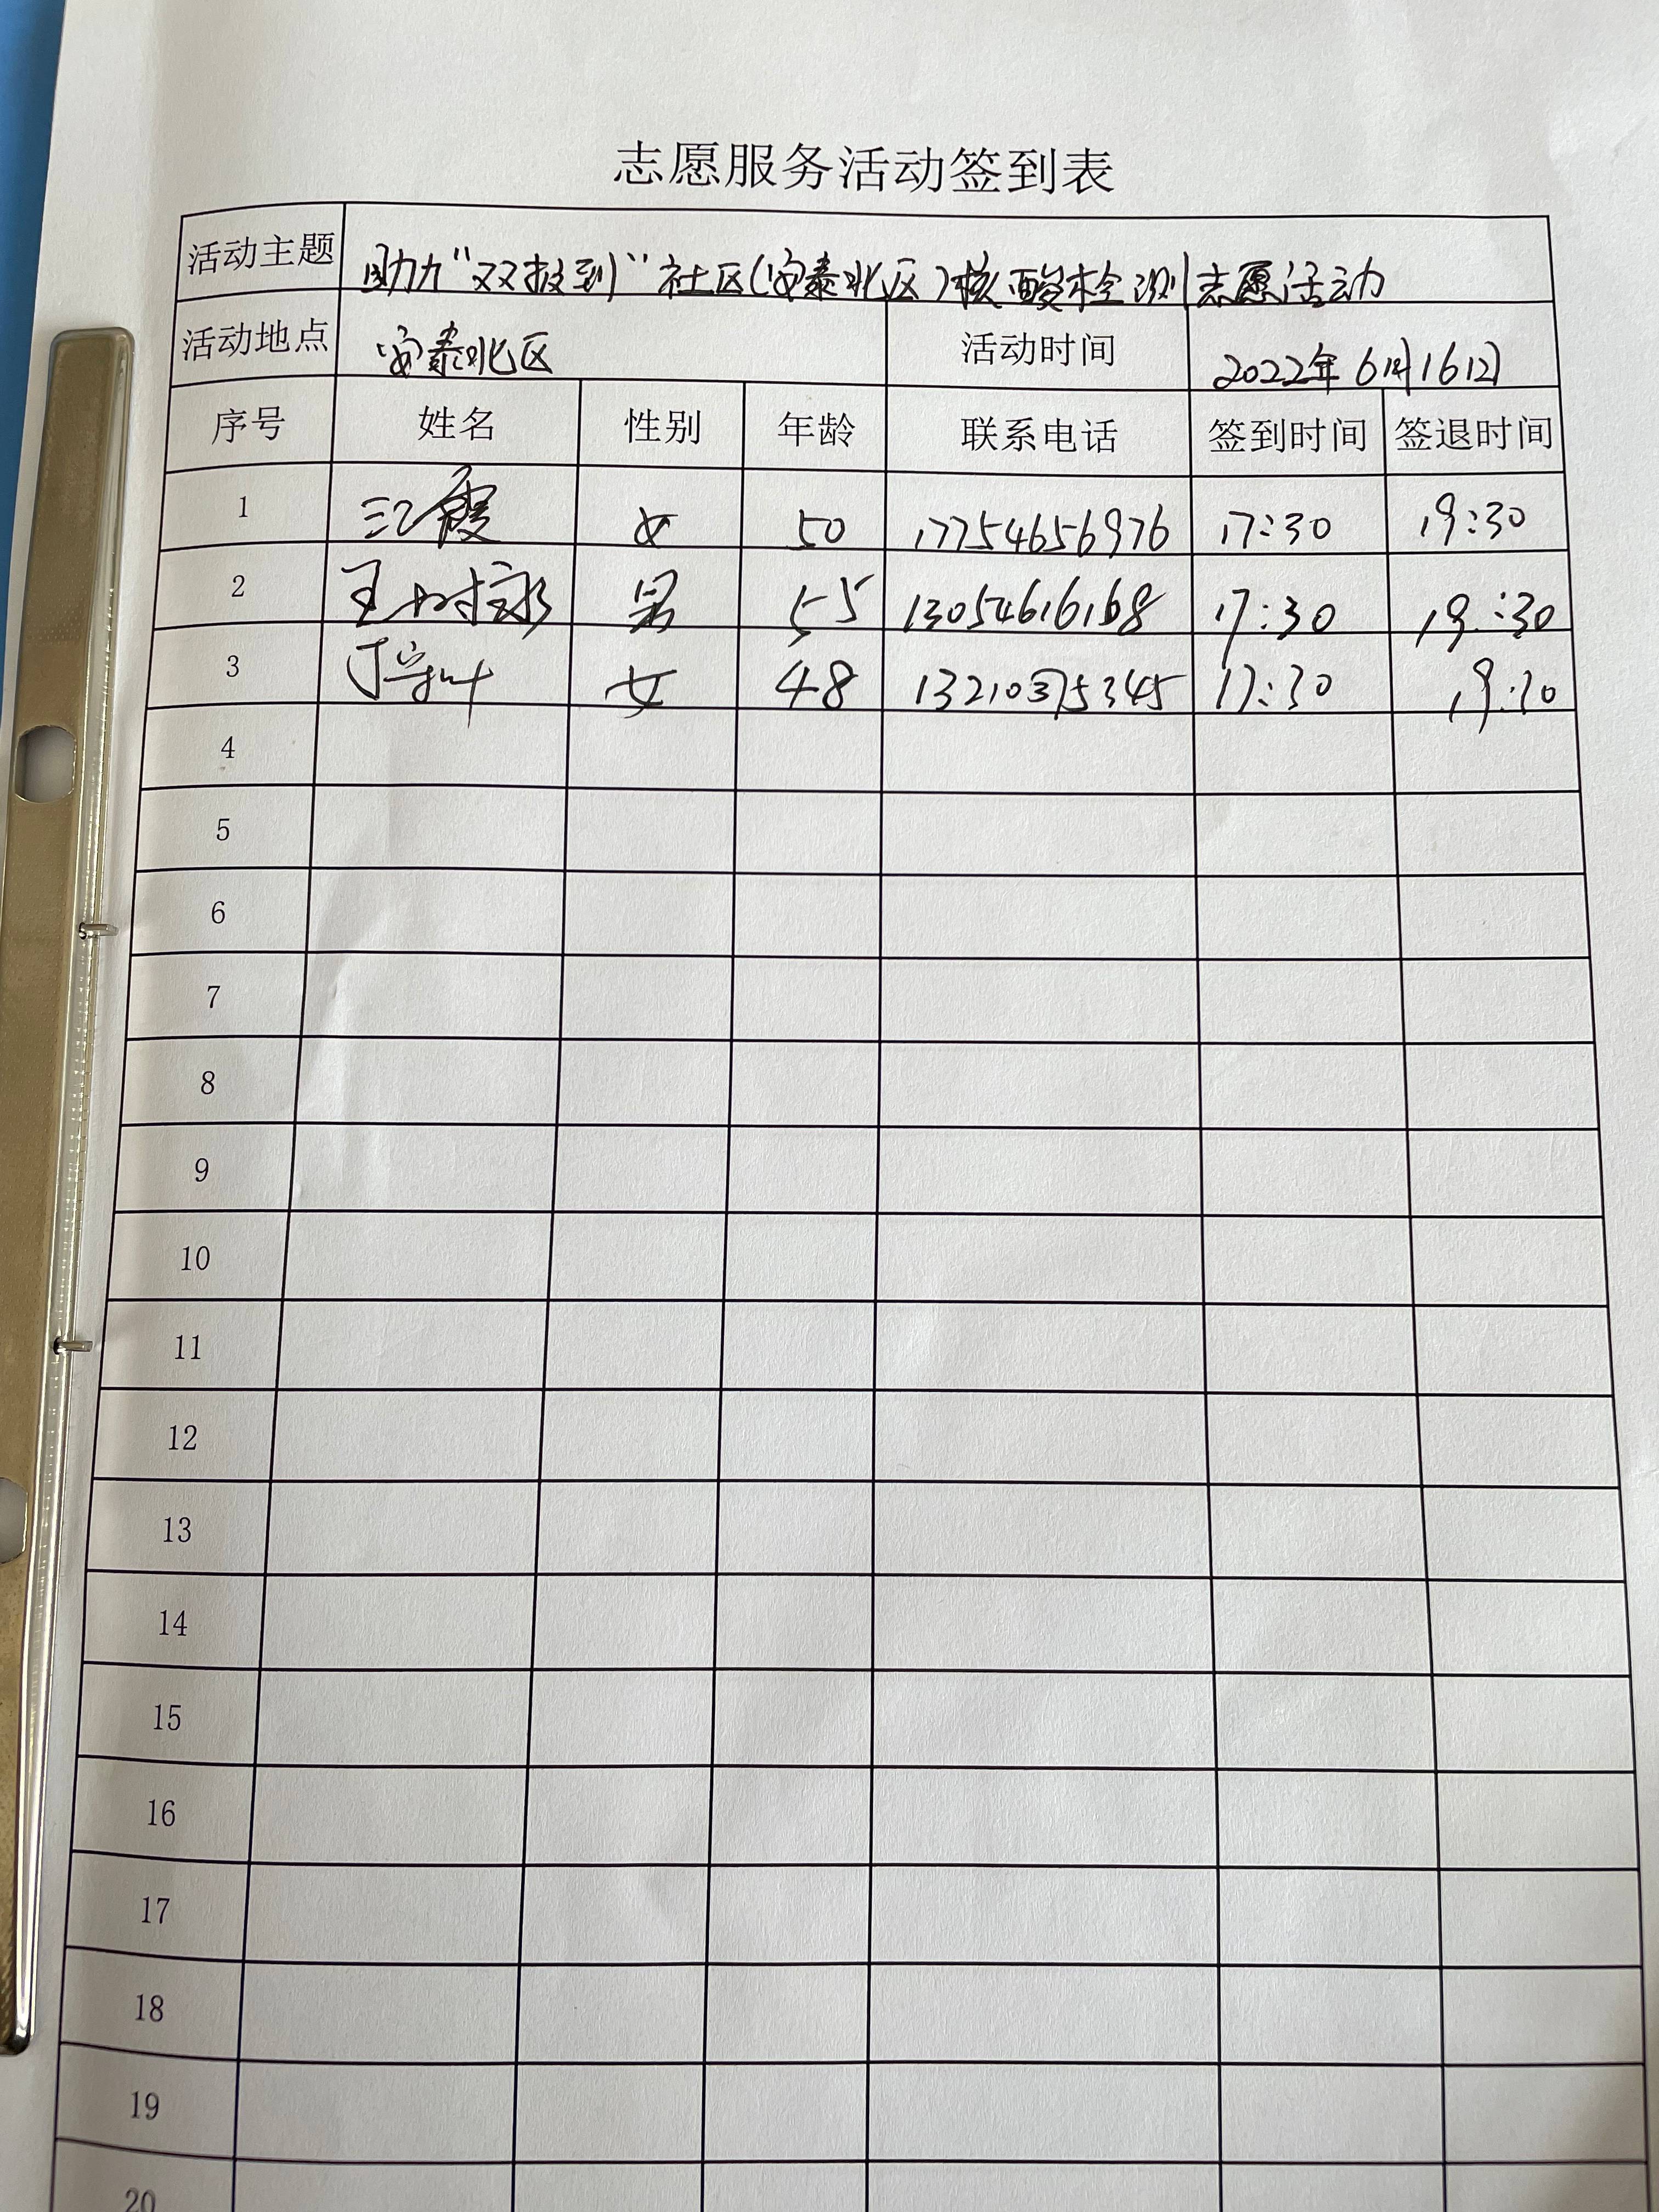 志愿服务活动签到表
活动主题 助力“双报到”社区(安泰北区)核酸检测志愿活动
活动地点 安泰北区 活动时间 2022年6月16日
序号 姓名 性别 年龄 联系电话 签到时间 签退时间
1 江霞 女 50 17754656976 17:30 19:30
2 王树永 男 55 13054616168 17:30 19:30
3 女 48 13210375345 17:30 19:30
4
5
6
7
8
9
10
11
12
13
14
15
16
17
18
19
20